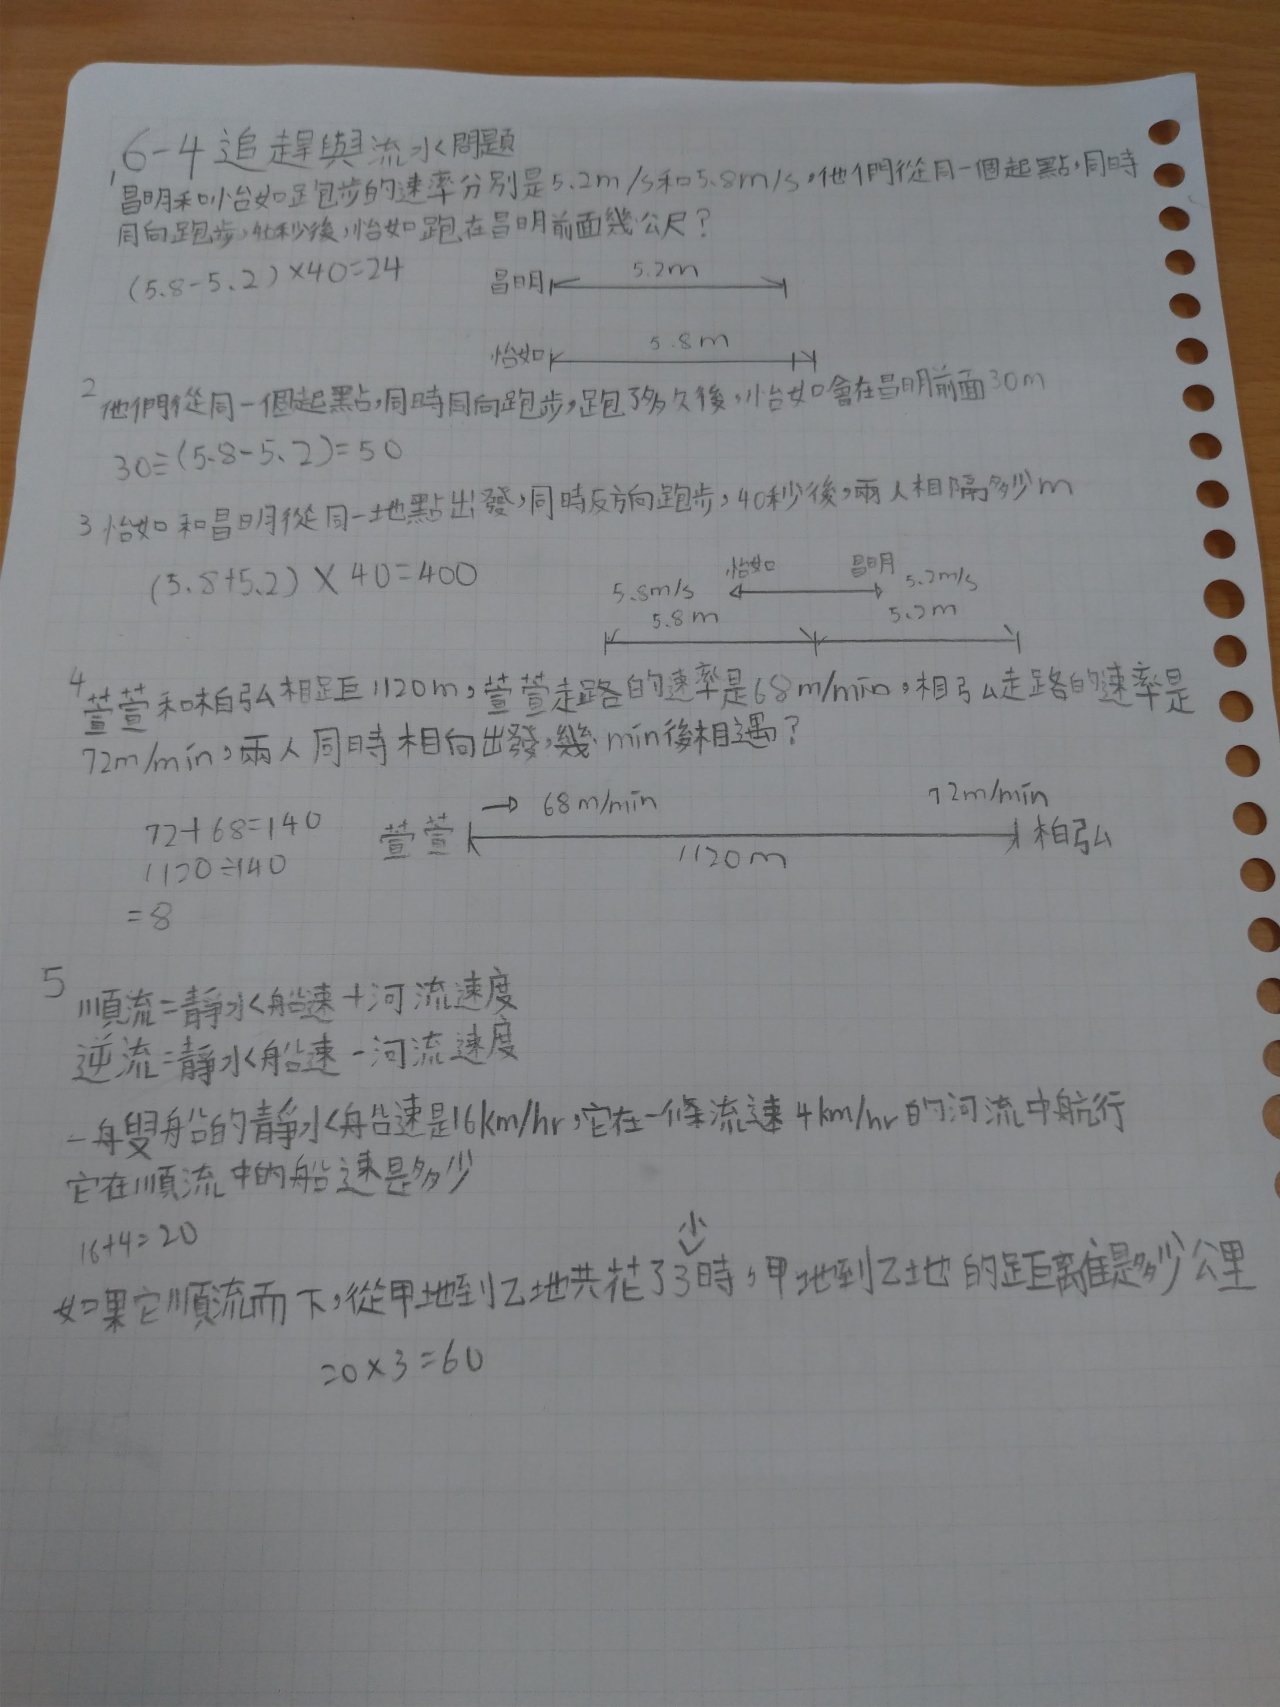 6-4追趕與流水問題
1昌明和怡如跑步的速率分別是5.2m/s和5.8m/s,他們從同一個起點,同時
同向跑步,40秒後,怡如跑在昌明前面幾公尺?
(5.8-5.2)×40=24
昌明 5.2m
怡如 5.8m
2他們從同一個起點,同時同向跑步,跑了多久後,怡如會在昌明前面30m
30÷(5.8-5.2)=50
3怡如和昌明從同一地點出發,同時反方向跑步,40秒後,兩人相隔多少m
(5.8+5.2)×40=400
怡如 昌明
5.8m/s 5.2m/s
5.8m 5.2m
4萱萱和柏弘相距1120m,萱萱走路的速率是68m/min,柏弘走路的速率是
72m/min,兩人同時相向出發,幾min後相遇?
72+68=140
1120÷140
=8
→ 68m/min 72m/min
萱萱 柏弘
1120m
5
順流=靜水船速+河流速度
逆流=靜水船速-河流速度
一艘船的靜水船速是16km/hr,它在一條流速4km/hr的河流中航行
它在順流中的船速是多少
16+4=20
如果它順流而下,從甲地到乙地共花了3小時,甲地到乙地的距離是多少公里
20×3=60